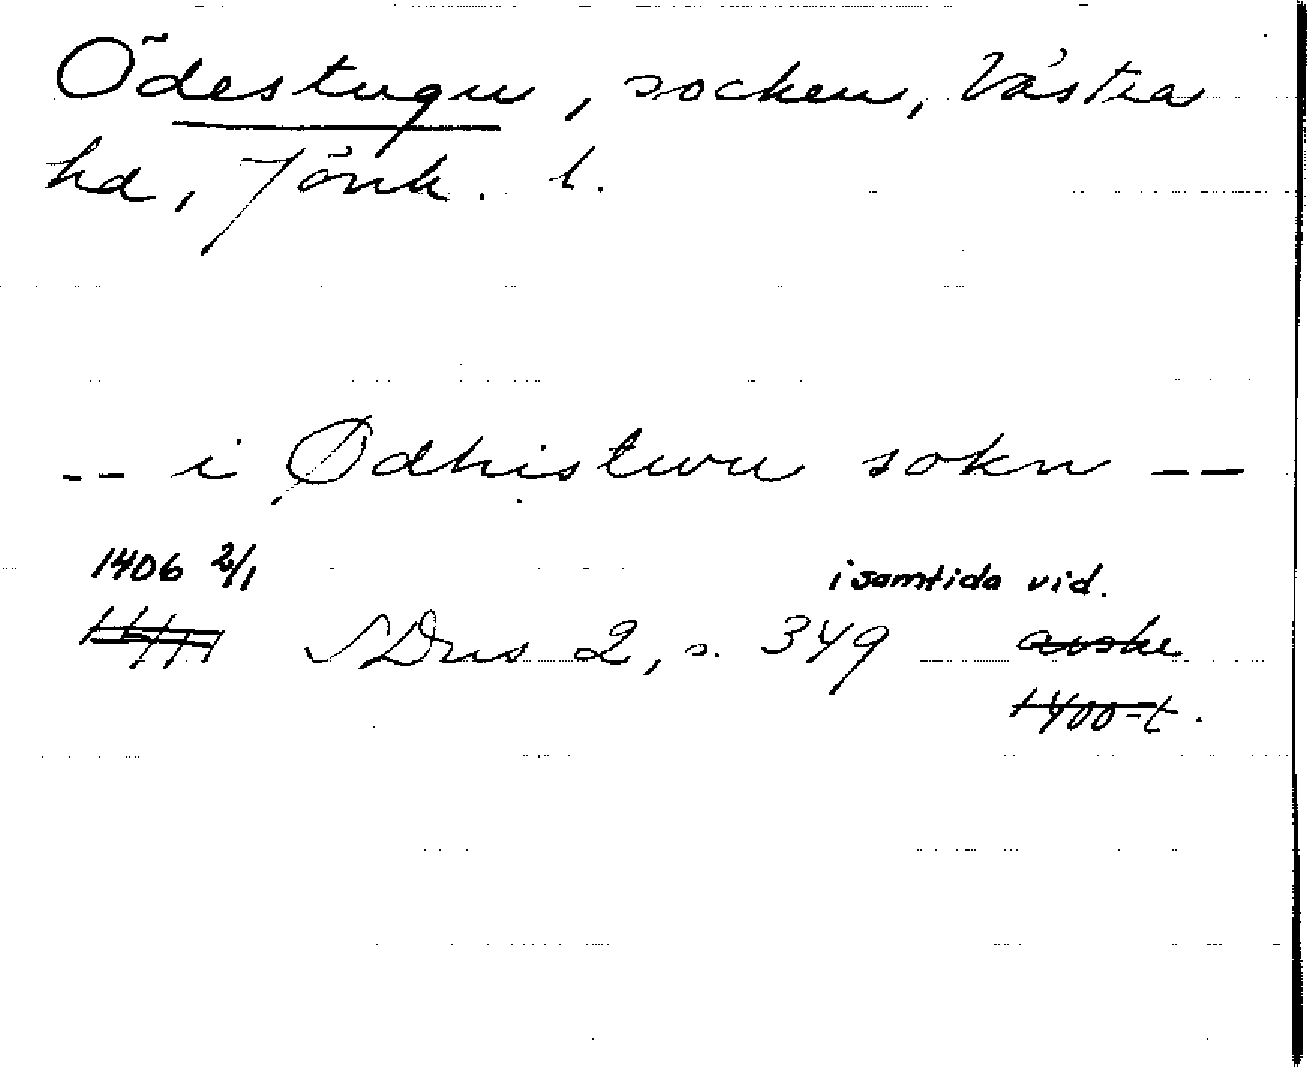 Ödestugu, socken, Västra
hd, Jönk. l.
-- i Ødhistuvu sokn --
1406 2/1 i samtida vid.
SDns 2, s. 349 avskr
1400-t.